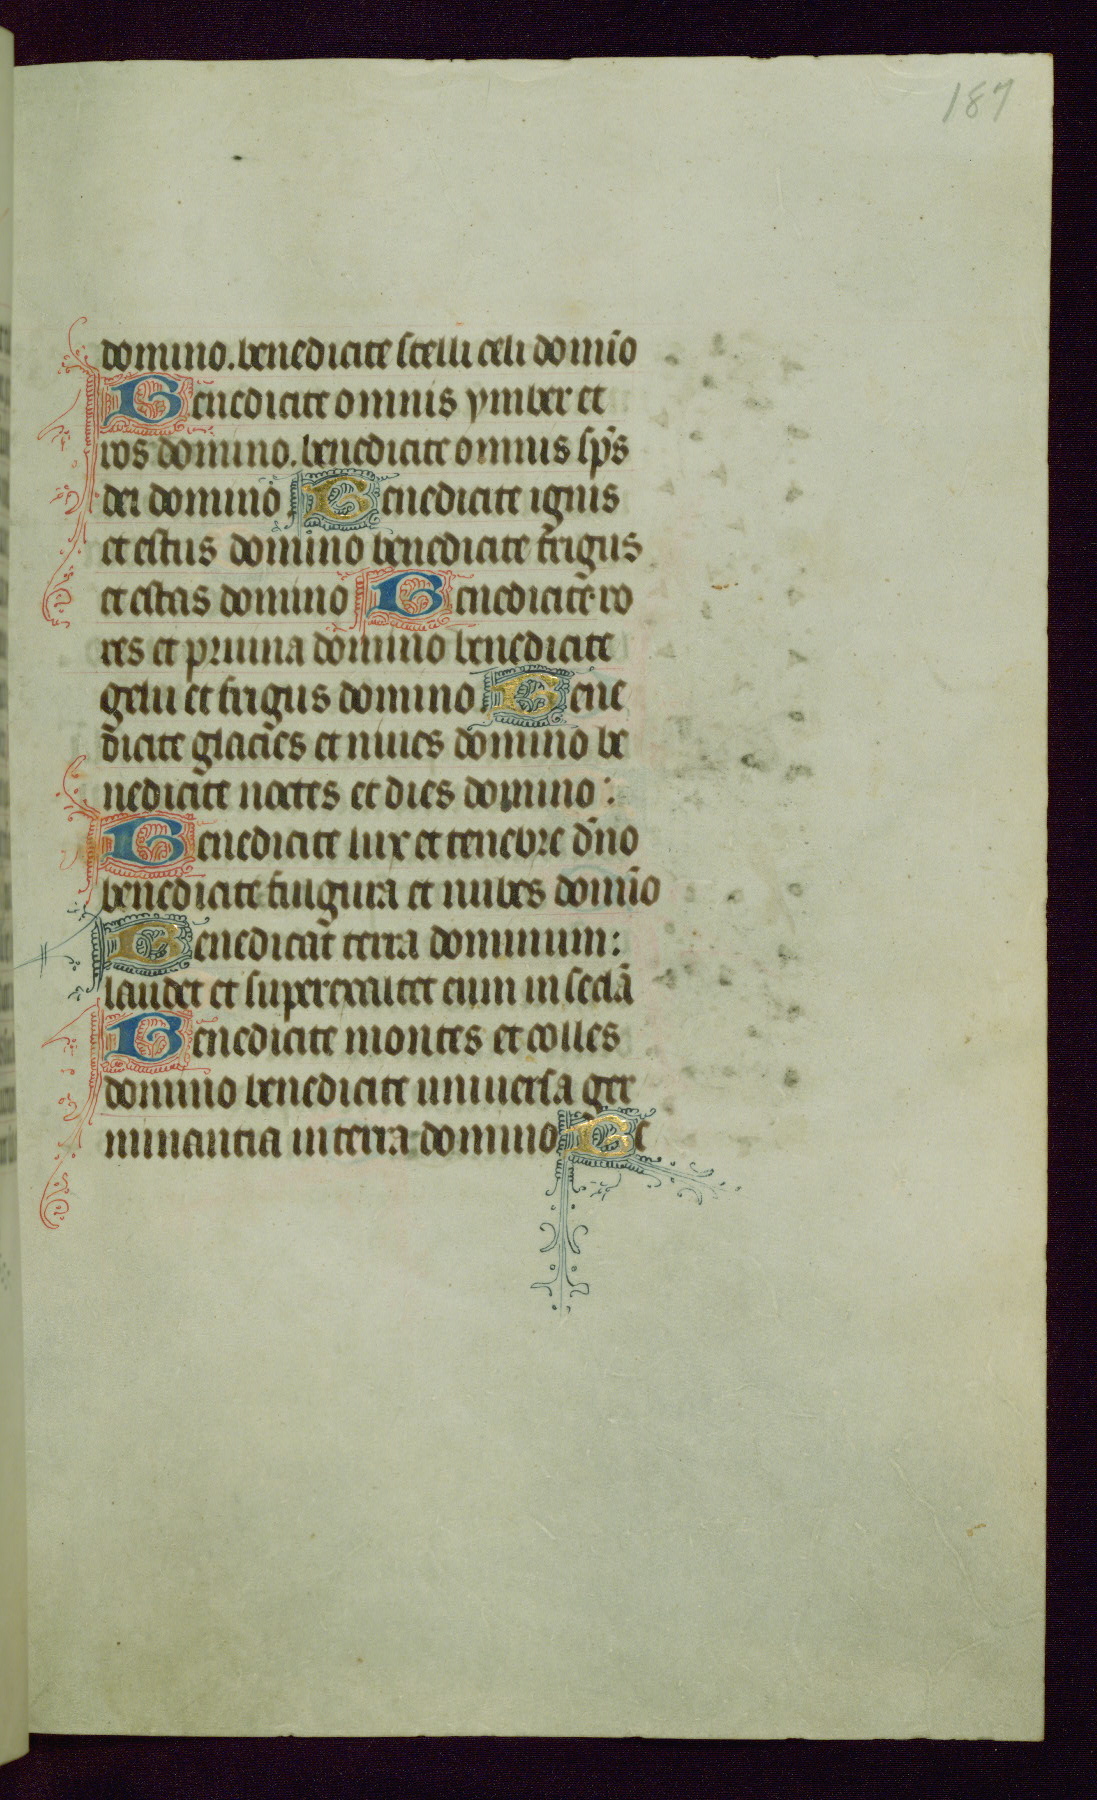 187
domino. benedicite stelli celi domīo
Benedicite omnis ymber et
ros domino. benedicite omnis sp̄s
dei domino Benedicite ignis
et estus domino benedicite frigus
et estas domino Benedicite ro
res et pruina domino benedicite
gelu et frigus domino. Bene
dicite glacies et niues domino be
nedicite noctes et dies domino :
Benedicite lux et tenebre dn̄o
benedicite fulgura et nubes domīo
Benedicat terra dominum :
laudet et superexaltet eum in seclā
Benedicite montes et colles
domino benedicite uniuersa ger
minantia in terra domino Be